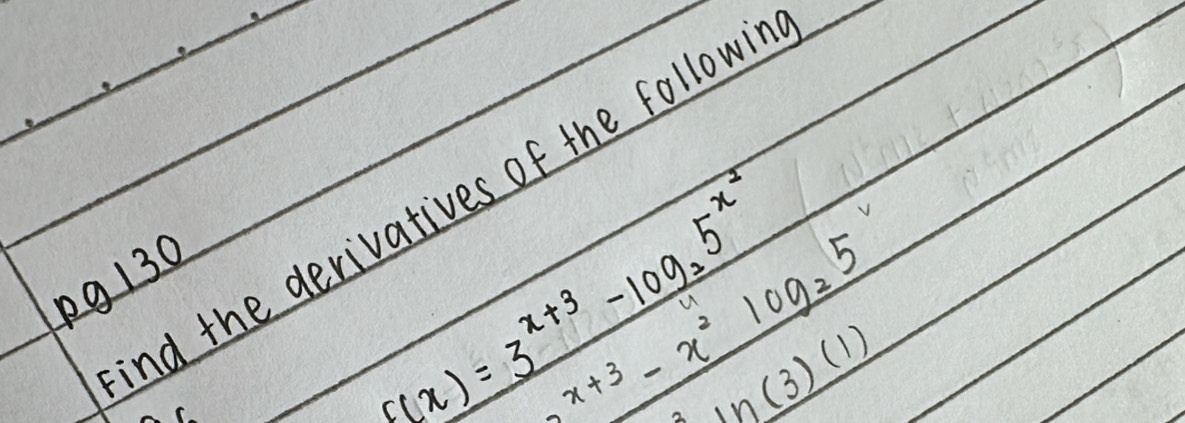 pg 130
Find the derivatives of the following
f(x) = 3^{x+3} - log₂ 5^{x²}
x+3 - x² log₂ 5
ln(3)(1)